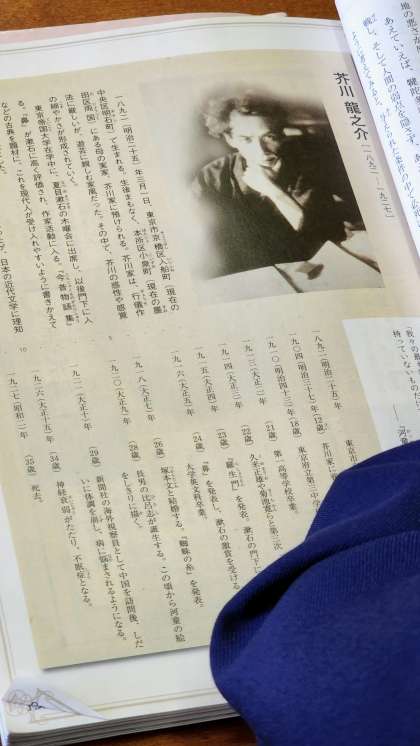 芥川 龍之介(一八九二―一九二七)
一八九二(明治二十五)年三月一日、東京市京橋区入船町(現在の
中央区明石町)で生まれる。生後まもなく、本所区小泉町(現在の墨
田区両国)にある母の実家、芥川家に預けられる。芥川家は、行儀作
法に厳しいが、遊芸に親しむ家風だった。その中で、芥川の感性や感覚
の細やかさが形成されていく。
東京帝国大学在学中に、夏目漱石の木曜会に出席し、以後門下に入
る。「鼻」が漱石に高く評価され、作家活動に入る。『今昔物語集』
などの古典を題材に、これを現代人が受け入れやすいように書きかえて
日本の近代文学に理知
5
10
一八九二(明治二十五)年
東京市
一九〇四(明治三十七)年(12歳)
芥川家に
一九一〇(明治四十三)年(18歳)
東京府立第三中学
第一高等学校卒業。
一九一三(大正二)年(21歳)
一九一四(大正三)年(22歳)
久米正雄や菊池寛らと第三次
一九一五(大正四)年(23歳)
「羅生門」を発表。漱石の門下に
一九一六(大正五)年(24歳)
「鼻」を発表し、漱石の激賞を受ける。
大学英文科卒業。
一九一八(大正七)年(26歳)
塚本文と結婚する。「蜘蛛の糸」を発表。
一九二〇(大正九)年(28歳)
長男の比呂志が誕生する。この頃から河童の絵
をしきりに描く。
一九二一(大正十)年(29歳)
新聞社の海外視察員として中国を訪問後、しだ
いに体調を崩し、病に悩まされるようになる。
一九二六(大正十五)年(34歳)
神経衰弱がたたり、不眠症となる。
一九二七(昭和二)年(35歳)
死去。